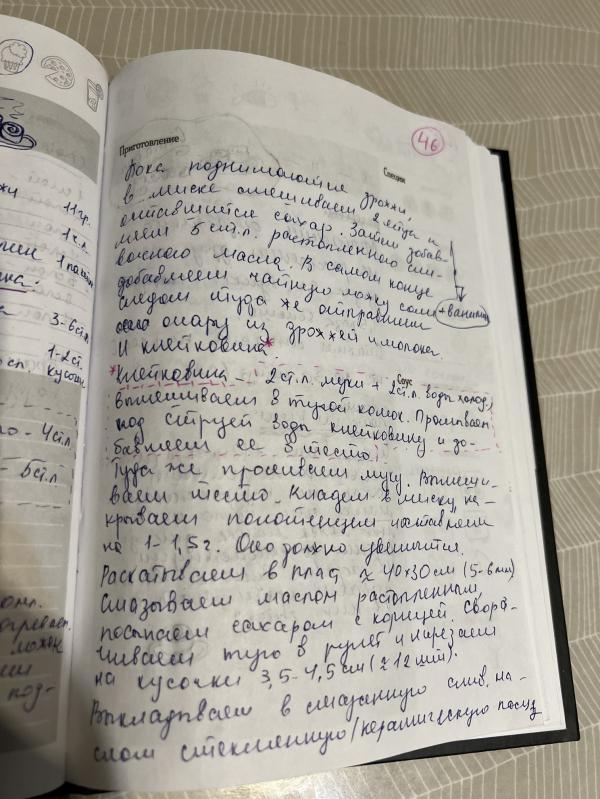 жи 11гр.
1 ч.л
1 пакетик
ка:
а 3-6ст.л
1-2ст.
кусочки
о - 4ст.л
- 5ст.л
можем
под-
46
Приготовление
Специи
Пока поднимаются дрожжи,
в миске смешиваем 2 яйца и
оставшийся сахар. Затем добав-
ляем 5 ст.л. растопленного сли-
вочного масла. В самом конце
добавляем чайную ложку соли + ванилин
следом туда же отправляем
опару из дрожжей и молока.
И клейковина*
Соус
*Клейковина - 2ст.л. муки + 2ст.л. воды холод.,
вымешиваем в тугой комок. Промываем
под струёй воды клейковину и до-
бавляем её в тесто.
Туда же просеиваем муку. Вымеши-
ваем тесто. Кладём в миску, на-
крываем полотенцем, оставляем
на 1-1,5г. Оно должно увеличится.
Раскатываем в пласт ≈ 40х30см (5-6мм)
Смазываем маслом растопленным,
посыпаем сахаром с корицей. Свора-
чиваем туго в рулет и нарезаем
на кусочки 3,5-4,5см (≈12шт).
Выкладываем в смазанную слив. ма-
слом стеклянную/керамическую посуд